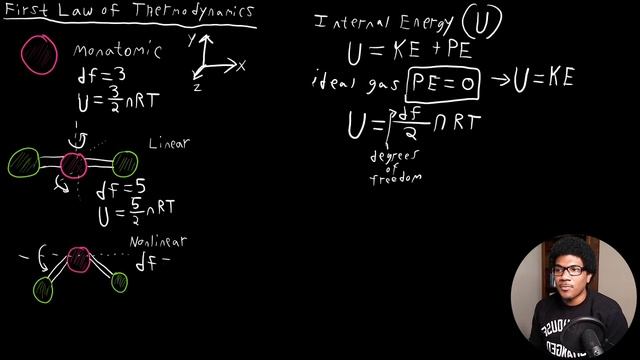 First Law of Thermodynamics
monatomic
df = 3
U = 3/2 nRT
Y
X
Z
Linear
df = 5
U = 5/2 nRT
Nonlinear
df -
Internal Energy (U)
U = KE + PE
ideal gas PE = 0 → U = KE
U = df/2 nRT
degrees
of
freedom
HOUSE
CHANGED